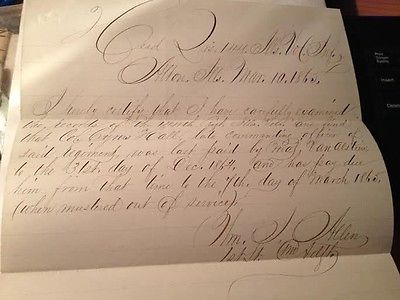 Head Qrs. 144th Ills. Vol. Inf.
Alton, Ills. Mar. 10, 1865,
I hereby certify that I have carefully examined
the records of
that Co. Cyrus Hall, late commanding officer of
said regiment, was last paid by Maj.
to the 31st. day of Dec. 1864, and has pay due
him from that time to the 7th, day of March 1865,
(when mustered out of service).
Wm. J. Allen
1st. Lt. and Adjt.